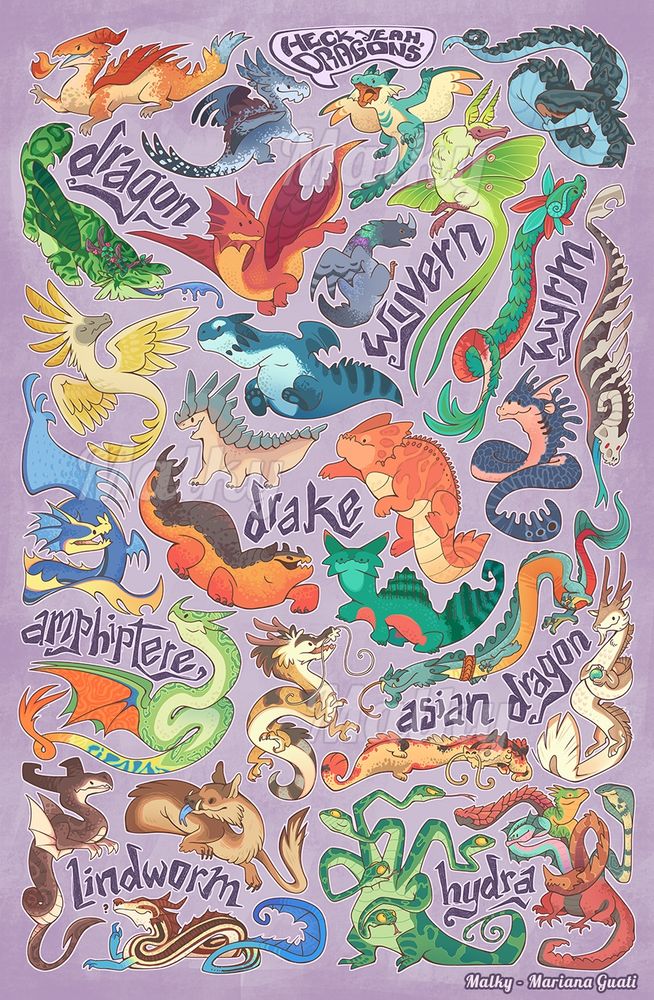 HECK YEAH,
DRAGONS
dragon
wyvern
wyrm
drake
amphiptere,
asian dragon
lindworm
hydra
Malky
Malky
Malky
Malky - Mariana Guati